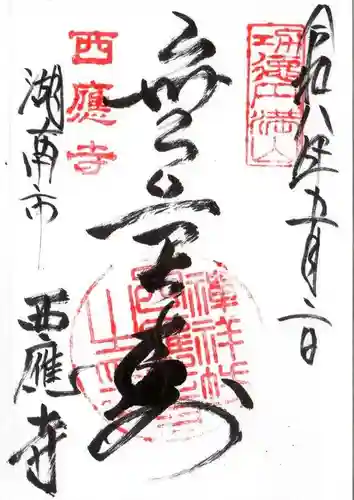 令和八年五月二日
無量寿
西應寺
湖南市
西應寺